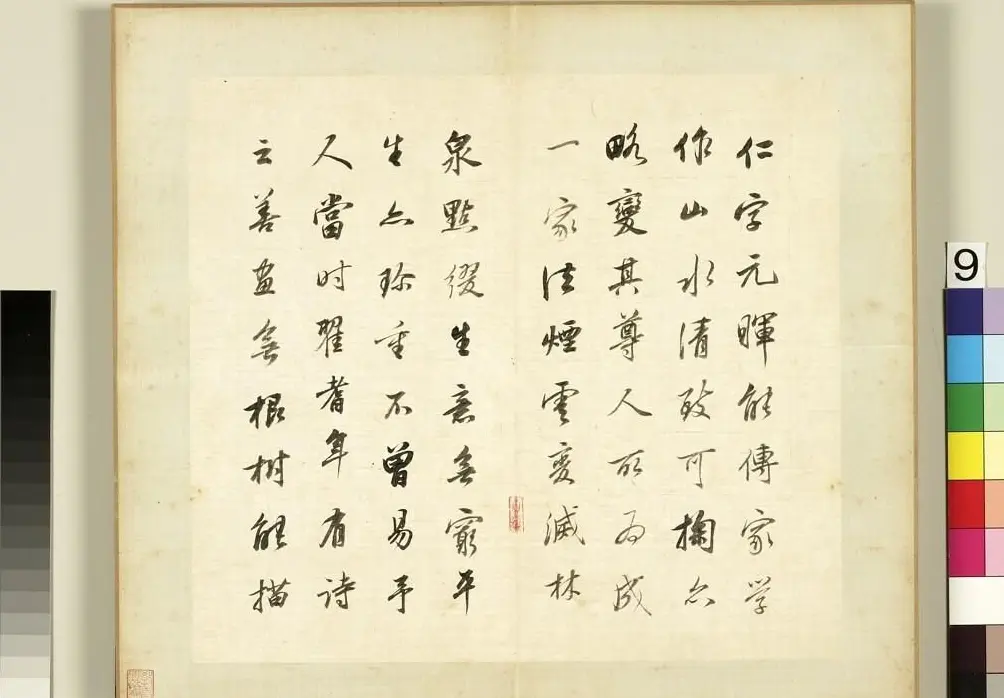 仁字元暉能傳家学
作山水清致可掬亦
略變其尊人所为成
一家法煙雲变滅林
泉點缀生意無窮平
生亦珍重不曾易予
人當时翟耆年有诗
云善画無根树能描
9